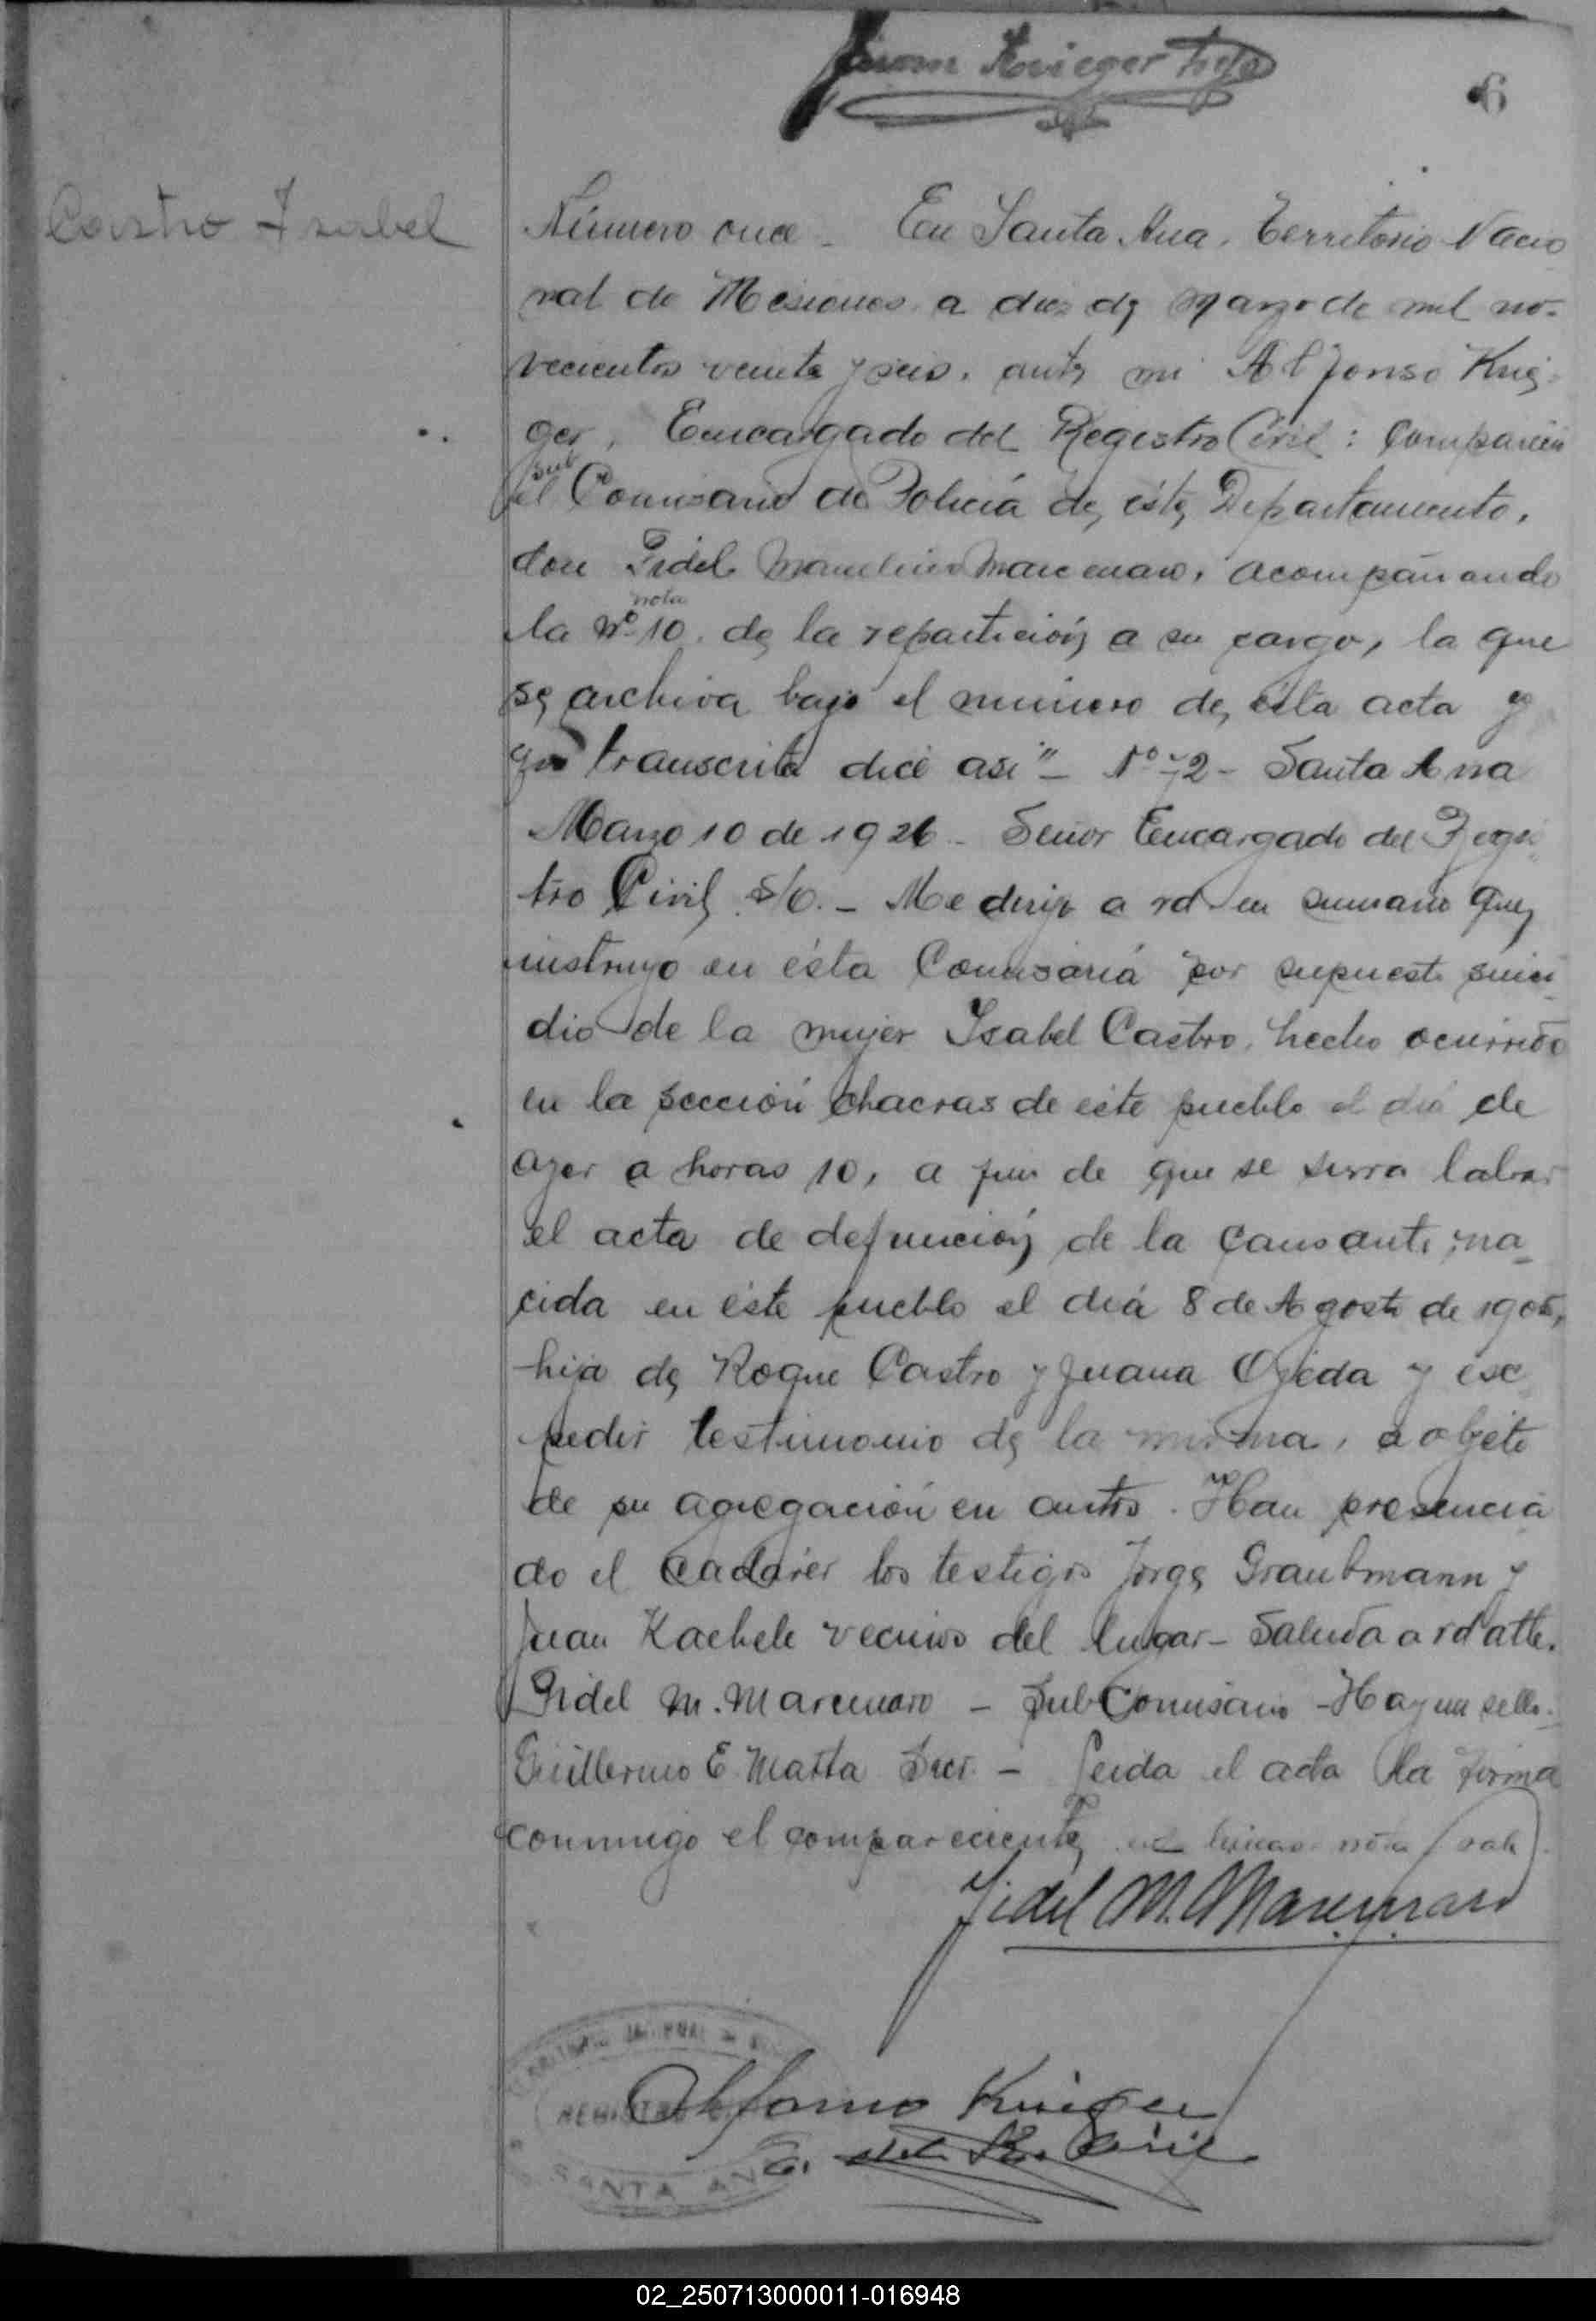 Juan Krieger hijo
6
Castro Isabel
Número once - En Santa Ana, Territorio Nacio
nal de Misiones, a diez de Marzo de mil no-
vecientos veinte y seis, ante mi Alfonso Krie-
ger, Encargado del Registro Civil: Compareció
sub
el Comisario de Policía de éste Departamento,
don Fidel Marcenaro, acompañando
nota
la Nº 10, de la repartición a su cargo, la que
se archiva bajo el número de ésta acta y
que transcrita dice asi "- Nº 72 - Santa Ana
Marzo 10 de 1926 - Señor Encargado del Regis-
tro Civil S/O. - Me dirijo a vd en sumario que
instruyo en ésta Comisaría por supuesto suici-
dio de la mujer Isabel Castro, hecho ocurrido
en la sección chacras de este pueblo el día de
ayer a horas 10, a fin de que se sirva labrar
el acta de defunción de la causante, na-
cida en éste pueblo el día 8 de Agosto de
hija de Roque Castro y Juana Ojeda y esc-
pedir testimonio de la misma, a objeto
de su agregación en autos. Han presencia
do el cadáver los testigos Jorge Graubmann y
Juan Kaehele vecinos del lugar - Saluda a vd atte.
Fidel M. Marcenaro - Sub Comisario - Hay un sello -
Guillermo E. Matta Secr. - Leida el acta la firma
conmigo el compareciente nota (vale)
Fidel M. Marcenaro
TERRITORIO NACIONAL DE
REGISTRO
SANTA ANA
Alfonso Krieger
E. del R. Civil
02_250713000011-016948